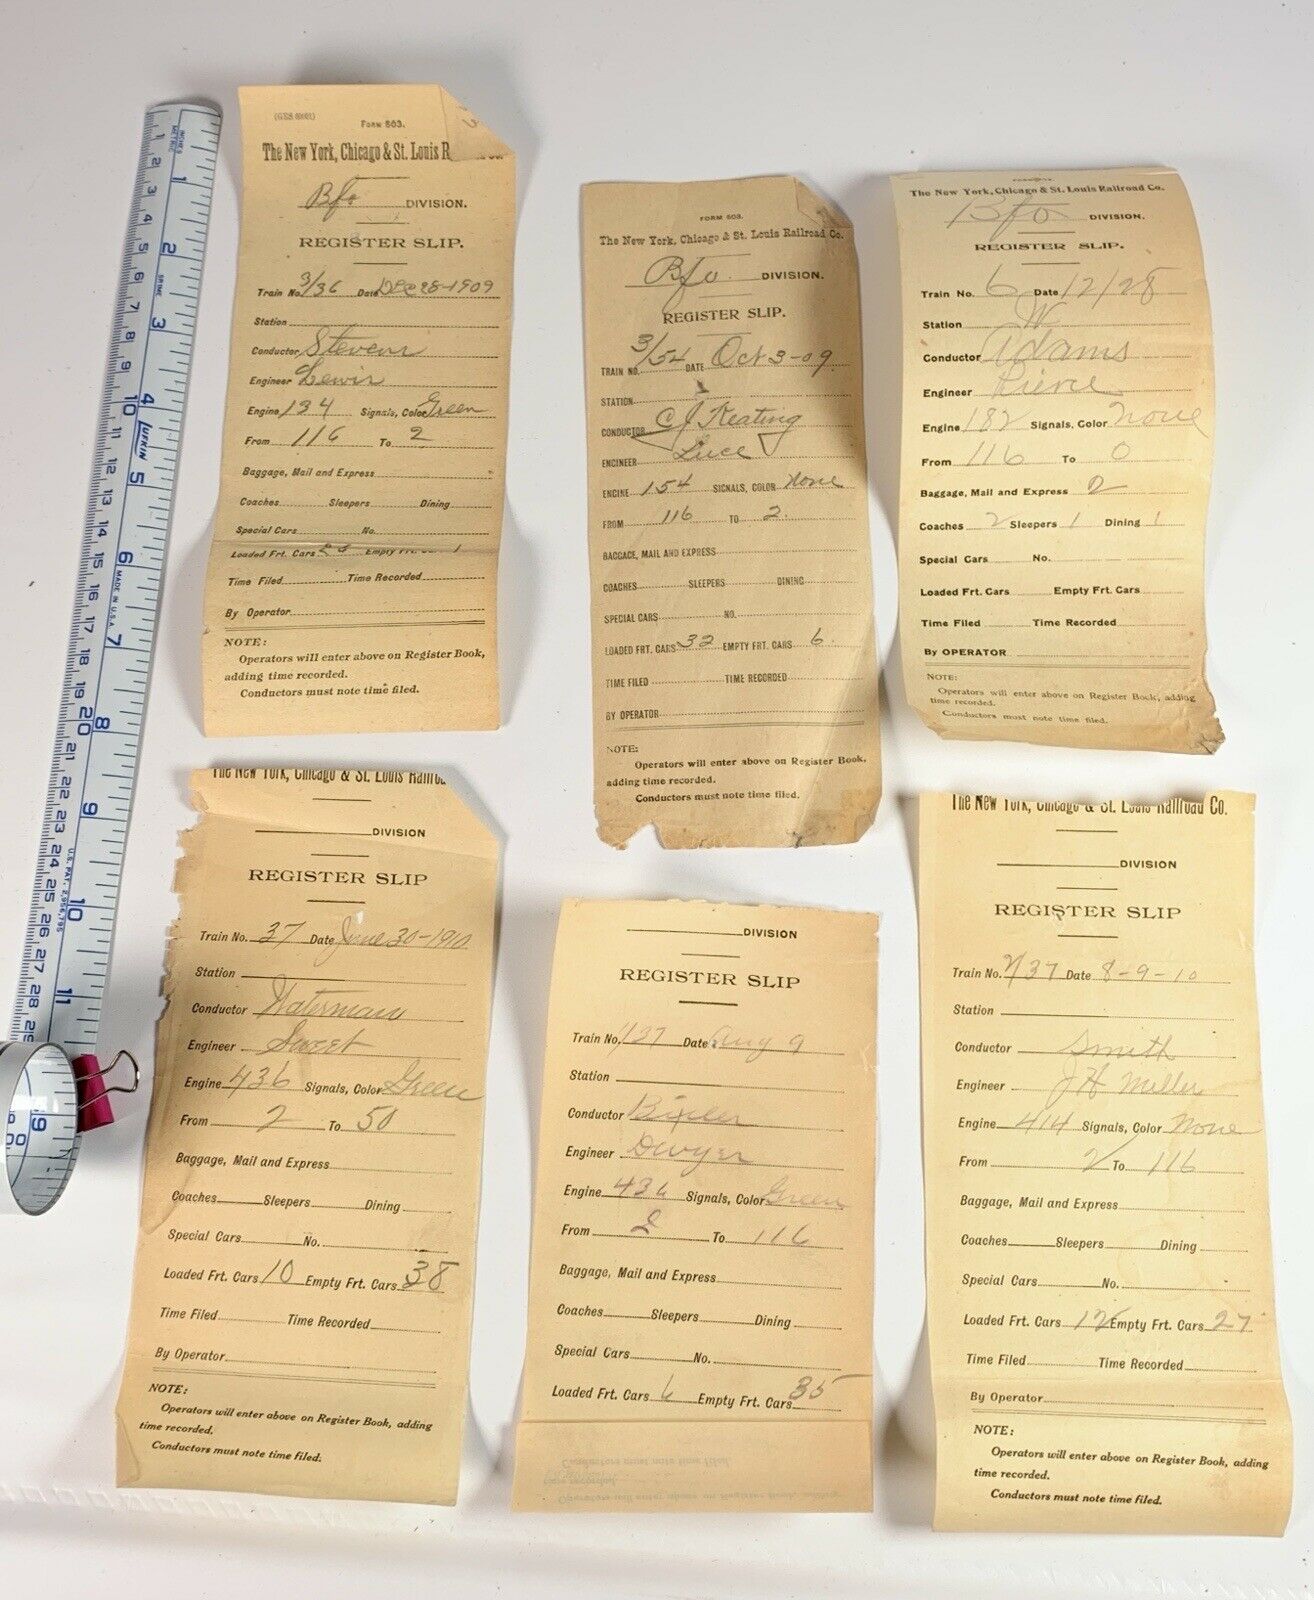 Form 503.
The New York, Chicago & St. Louis R
Bfo DIVISION.
REGISTER SLIP.
Train No. 3/36 Date Dec 28-1909
Station
Conductor Stevens
Engineer Lewis
Engine 134 Signals, Color Green
From 116 To 2
Baggage, Mail and Express
Coaches Sleepers Dining
Special Cars No.
Loaded Frt. Cars Empty Frt. Cars 1
Time Filed Time Recorded
By Operator
NOTE:
Operators will enter above on Register Book,
adding time recorded.
Conductors must note time filed.
FORM 503.
The New York, Chicago & St. Louis Railroad Co.
Bfo. DIVISION.
REGISTER SLIP.
TRAIN NO. 3/54 DATE Oct 3-09
STATION
CONDUCTOR C J Keating
ENGINEER Luce
ENGINE 154 SIGNALS, COLOR None
FROM 116 TO 2.
BAGGAGE, MAIL AND EXPRESS
COACHES SLEEPERS DINING
SPECIAL CARS NO.
LOADED FRT. CARS 32 EMPTY FRT. CARS 6
TIME FILED TIME RECORDED
BY OPERATOR
NOTE:
Operators will enter above on Register Book,
adding time recorded.
Conductors must note time filed.
The New York, Chicago & St. Louis Railroad Co.
Bfo DIVISION.
REGISTER SLIP.
Train No. 6 Date 12/28
Station W
Conductor Adams
Engineer Pierce
Engine 182 Signals, Color None
From 116 To 0
Baggage, Mail and Express 2
Coaches 2 Sleepers 1 Dining 1
Special Cars No.
Loaded Frt. Cars Empty Frt. Cars
Time Filed Time Recorded
By OPERATOR
NOTE:
Operators will enter above on Register Book, adding
time recorded.
Conductors must note time filed.
The New York, Chicago & St. Louis Railroa
DIVISION
REGISTER SLIP
Train No. 37 Date June 30-1910.
Station
Conductor Waterman
Engineer Sweet
Engine 436 Signals, Color Green
From 2 To 50
Baggage, Mail and Express
Coaches Sleepers Dining
Special Cars No.
Loaded Frt. Cars 10 Empty Frt. Cars 38
Time Filed Time Recorded
By Operator
NOTE:
Operators will enter above on Register Book, adding
time recorded.
Conductors must note time filed.
DIVISION
REGISTER SLIP
Train No. 1/37 Date Aug 9
Station
Conductor Bixler
Engineer Dwyer
Engine 436 Signals, Color Green
From 2 To 116
Baggage, Mail and Express
Coaches Sleepers Dining
Special Cars No.
Loaded Frt. Cars 6 Empty Frt. Cars 35
The New York, Chicago & St. Louis Railroad Co.
DIVISION
REGISTER SLIP
Train No. 2/37 Date 8-9-10
Station
Conductor Smith
Engineer J H Miller
Engine 414 Signals, Color None
From 2 To 116
Baggage, Mail and Express
Coaches Sleepers Dining
Special Cars No.
Loaded Frt. Cars 12 Empty Frt. Cars 27
Time Filed Time Recorded
By Operator
NOTE:
Operators will enter above on Register Book, adding
time recorded.
Conductors must note time filed.
INCHES
METRIC
LUFKIN
MADE IN U.S.A
U.S. PAT. 2,956,795
1 2 3 4 5 6 7 8 9 10 11